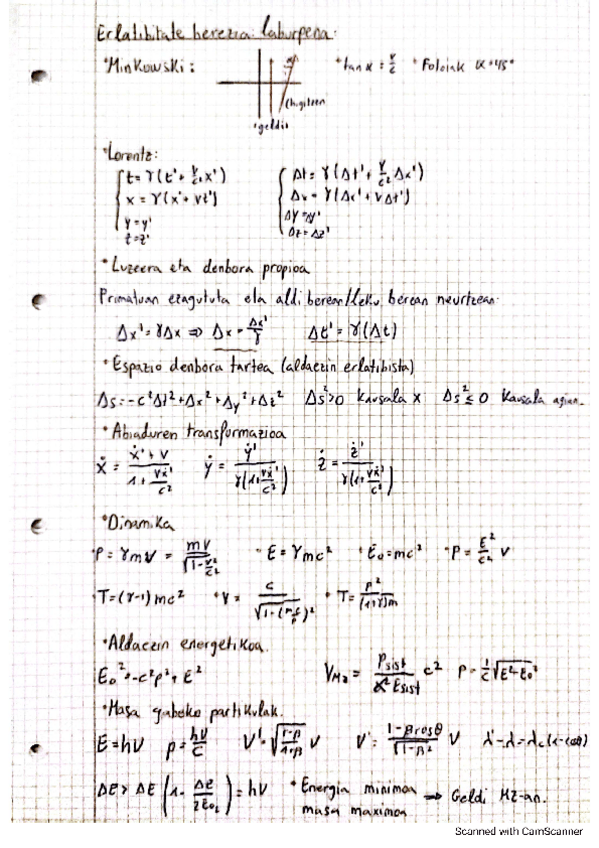 Erlatibitate berezia laburpena:
• Minkowski:
• tan α = v/c
• Fotoiak α = 45°
• geldi
• Lorentz:
t = γ(t' + v/c² x')
x = γ(x' + vt')
y = y'
z = z'
Δt = γ(Δt' + v/c² Δx')
Δx = γ(Δx' + vΔt')
Δy = Δy'
Δz = Δz'
• Luzeera eta denbora propioa
Primatuan ezagututa eta aldi berean/leku berean neurtzean:
Δx' = γΔx ⇒ Δx = Δx'/γ Δt' = γ(Δt)
• Espazio denbora tartea (aldaezin erlatibista)
Δs = -c²Δt² + Δx² + Δy² + Δz² Δs² > 0 kausala x Δs² ≤ 0 kausala
• Abiaduren transformazioa
ẋ = (ẋ' + v)/(1 + vẋ'/c²) ẏ = ẏ'/(γ(1 + vẋ'/c²)) ż = ż'/(γ(1 + vẋ'/c²))
• Dinamika
P = γmv = mv/√(1 - v²/c²) • E = γmc² • E₀ = mc²
• T = (γ-1)mc² • T = p²/((1+γ)m)
• Aldaezin energetikoa.
E₀² = -c²p² + E² P = 1/c √(E² - E₀²)
• Masa gabeko partikulak.
E = hν p = hν/c ν' = √((1-β)/(1+β)) ν ν' = (1 - βcosθ)/√(1-β²) ν
= hν • Energia minimoa
masa maximoa ⇒ Geldi MZ-an.
Scanned with CamScanner